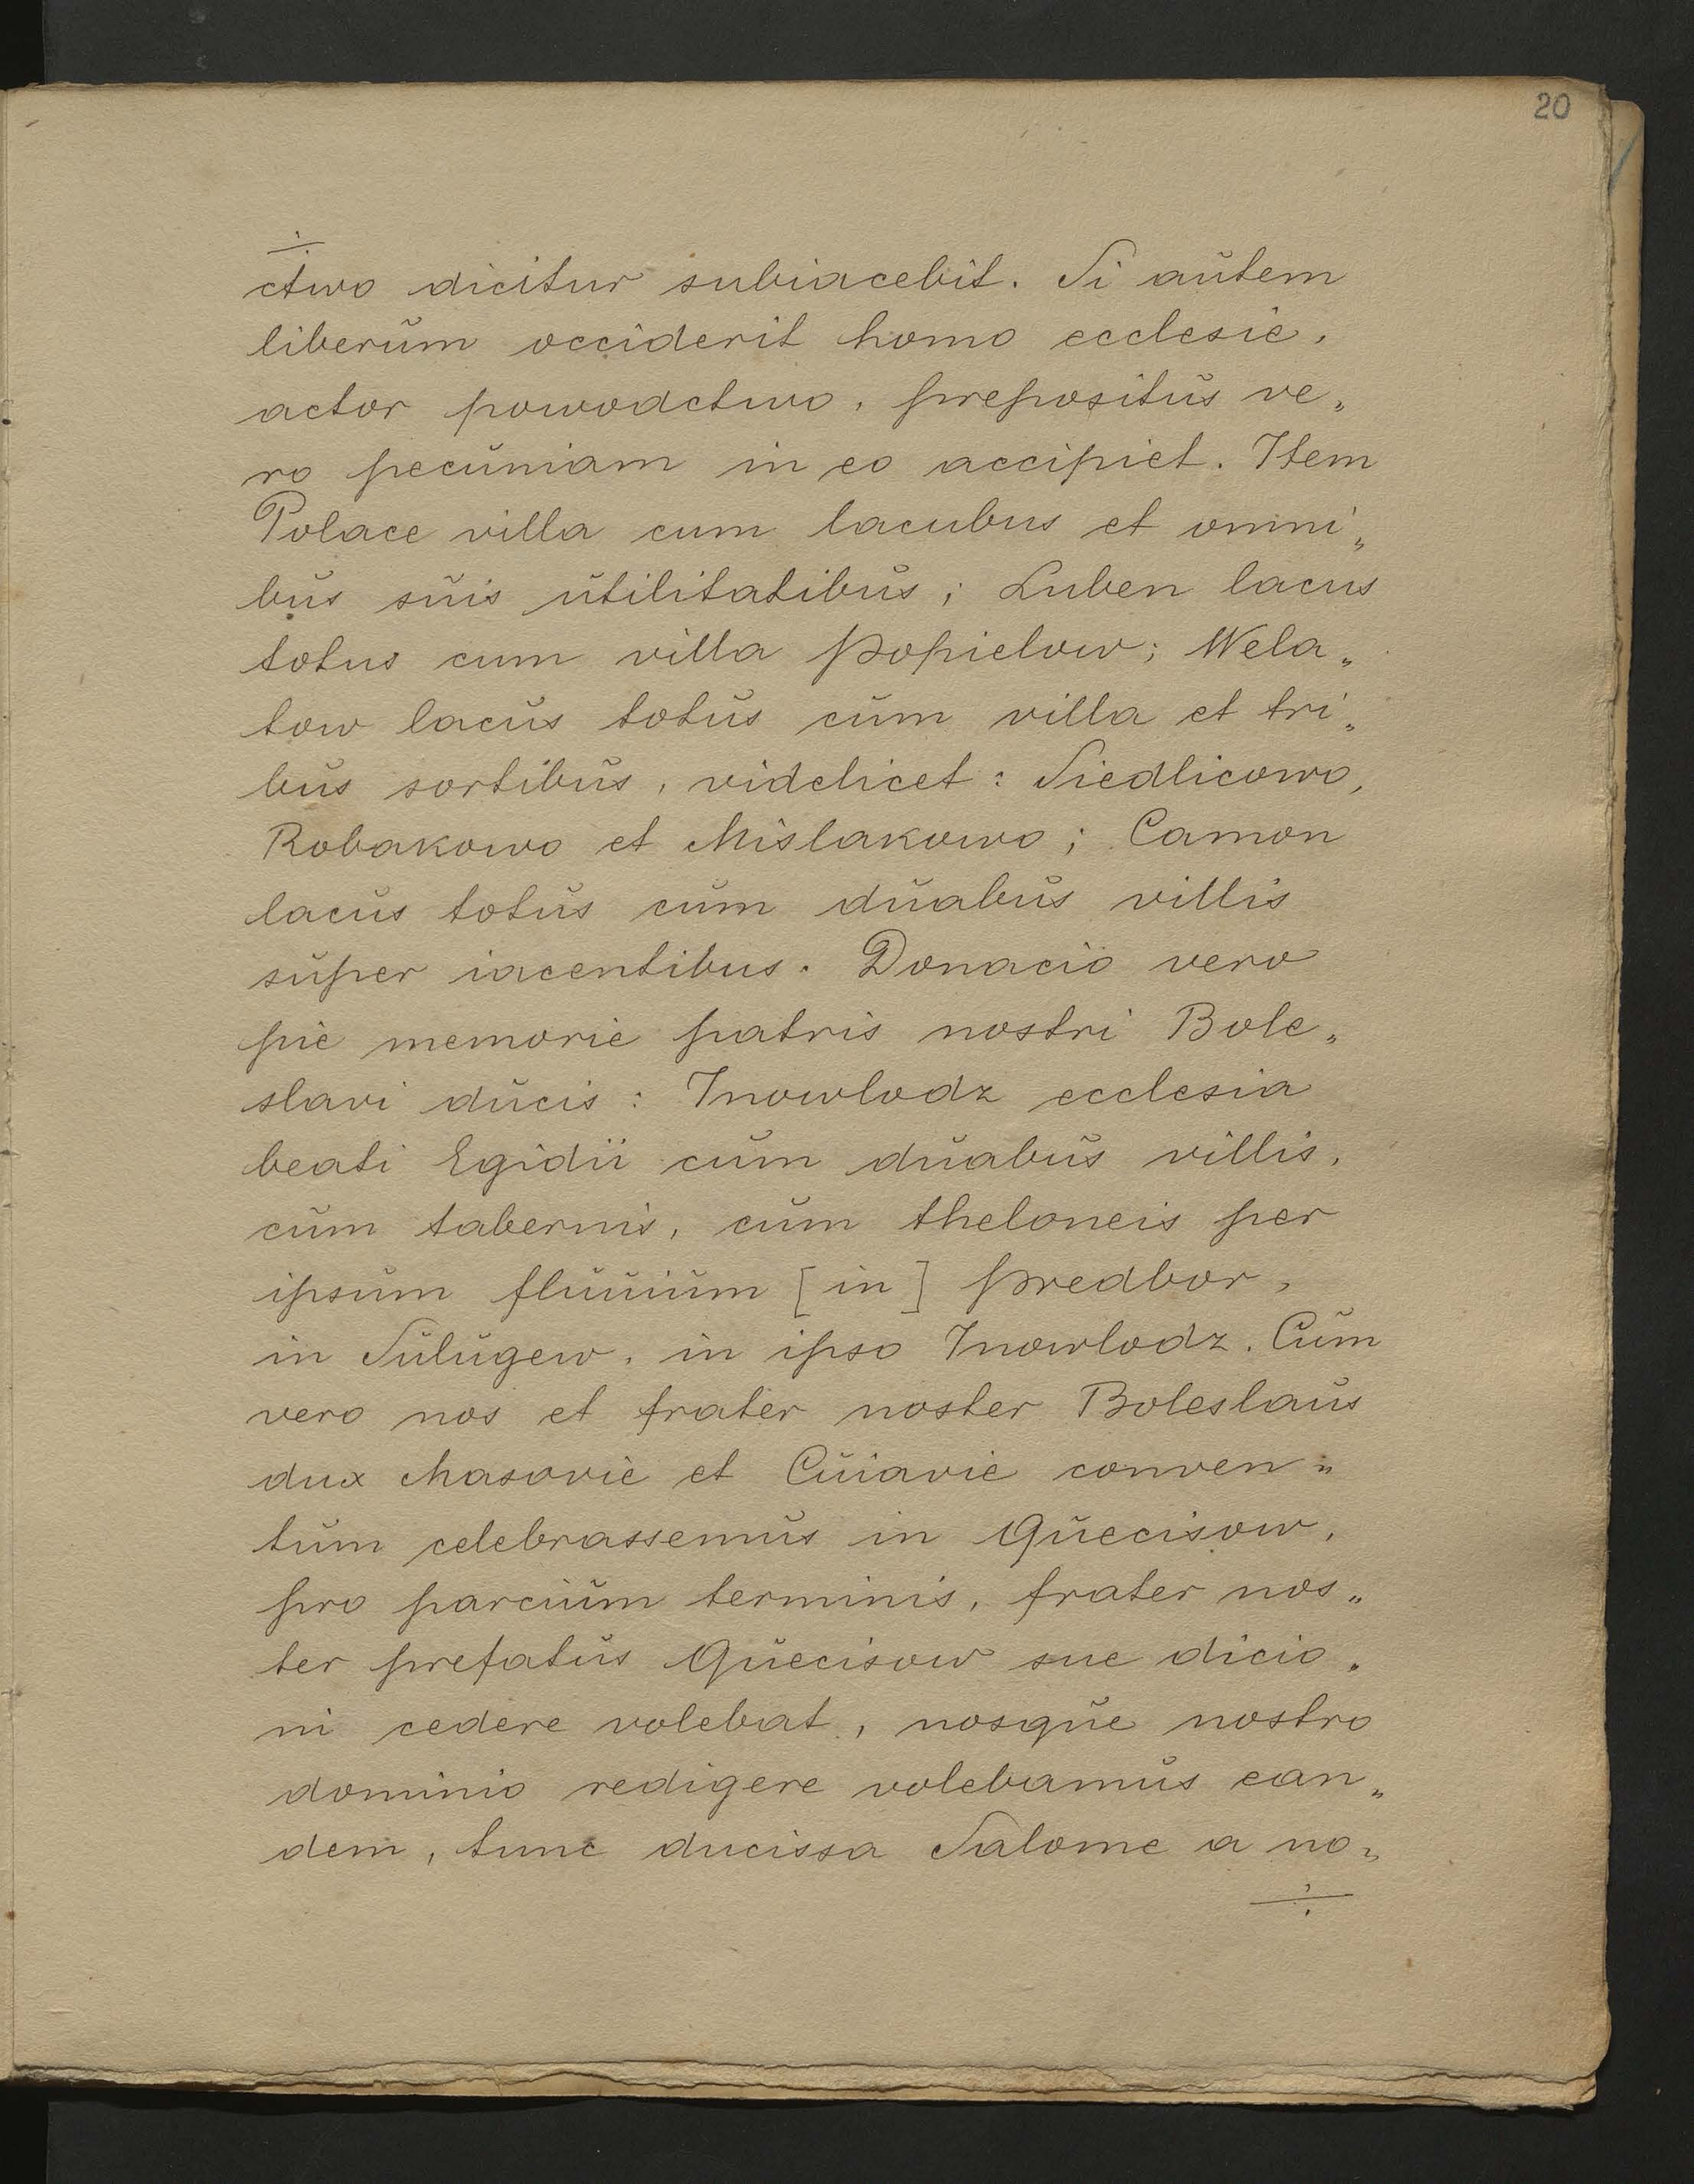 20
÷
ctwo dicitur subiacebit. Si aŭtem
liberŭm occiderit homo ecclesie,
actor powodctwo, prepositŭs ve„
ro pecŭniam in eo accipiet. Item
Polace villa cum lacubus et omni„
bŭs sŭis ŭtilitatibŭs; Luben lacus
totus cum villa Popielow; Wela„
tow lacŭs totŭs cŭm villa et tri„
bŭs sortibŭs, videlicet: Siedlicowo,
Robakowo et Mislakowo; Camon
lacŭs totŭs cŭm dŭabŭs villis
sŭper iacentibus. Donacio vero
pie memorie patris nostri Bole„
slavi dŭcis: Inowlodz ecclesia
beati Egidii cŭm dŭabŭs villis,
cŭm tabernis, cŭm theloneis per
ipsŭm flŭŭiŭm [in] Predbor,
in Sŭlŭgew, in ipso Inowlodz. Cŭm
vero nos et frater noster Boleslaŭs
dux Masovie et Cŭiavie conven„
tŭm celebrassemŭs in Qŭecisow,
pro parciŭm terminis, frater nos„
ter prefatŭs Qŭecisow sue dicio„
ni cedere volebat, nosqŭe nostro
dominio redigere volebamŭs ean„
dem, tunc ducissa Salome a no„
÷